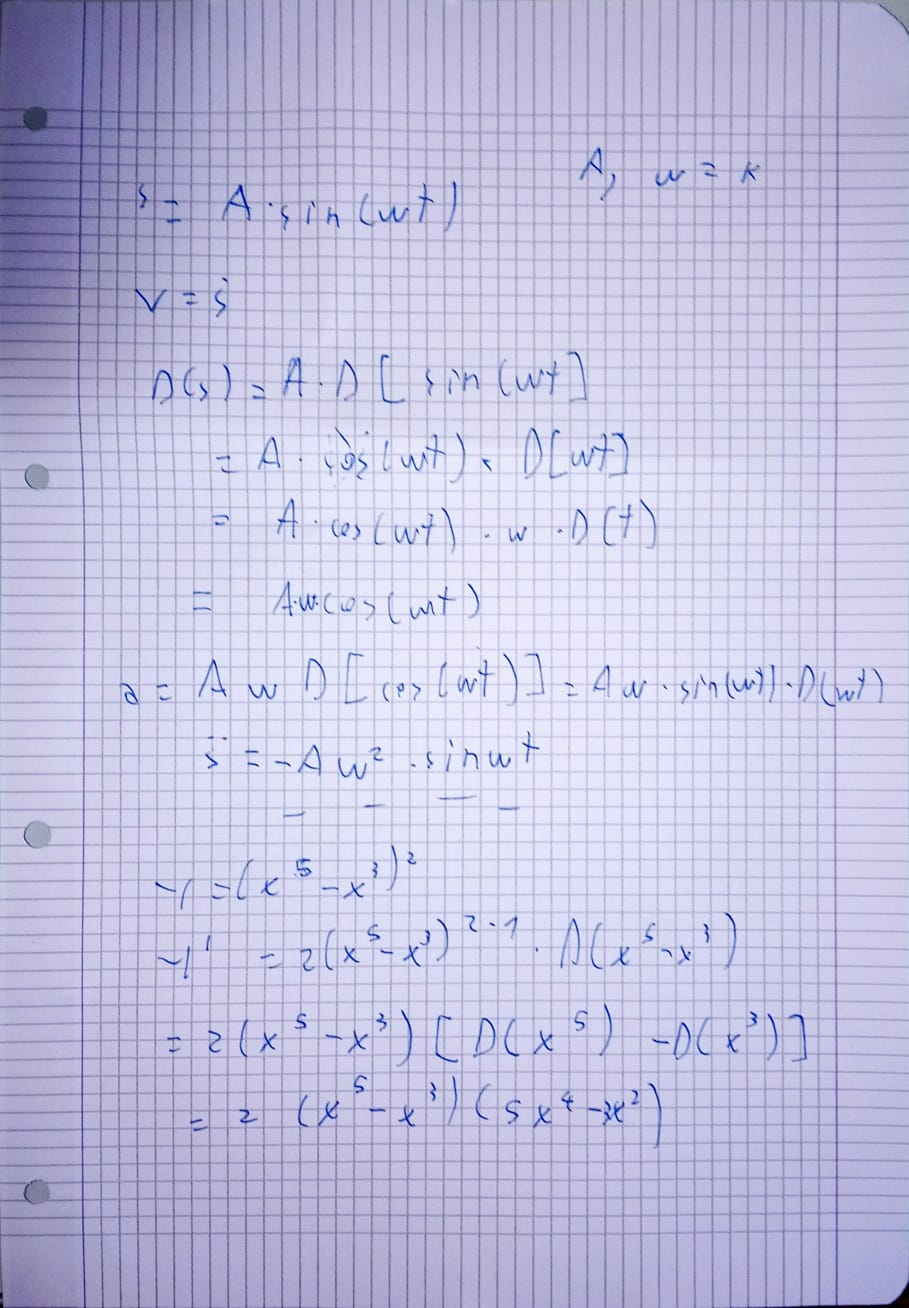 A, w = k
s = A · sin (wt)
v = ṡ
D(s) = A · D [ sin (wt ]
= A · cos (wt) · D[wt]
= A · cos (wt) · w · D (t)
= A·w·cos (wt)
a = A w D [ cos (wt) ] = A w · sin(wt) · D(wt)
s̈ = - A w² · sin wt
y = (x⁵ - x³)²
y' = 2(x⁵ - x³)²⁻¹ · D(x⁵ - x³)
= 2 (x⁵ - x³) [ D(x⁵) - D(x³) ]
= 2 (x⁵ - x³) (5x⁴ - 3x²)